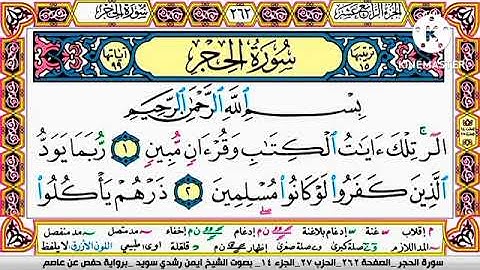 الجزء الرابع عشر ٢٦٢ سورة الحجر
ترتيبها ١٥ سُورَةُ الحِجْرِ آياتها ٩٩
KINEMASTER
بِسْمِ اللَّهِ الرَّحْمَٰنِ الرَّحِيمِ
الٓر ۚ تِلْكَ ءَايَٰتُ الْكِتَٰبِ وَقُرْءَانٍ مُّبِينٍ ١ رُّبَمَا يَوَدُّ
الَّذِينَ كَفَرُوا لَوْ كَانُوا مُسْلِمِينَ ٢ ذَرْهُمْ يَأْكُلُوا
م إقلاب غنة إدغام بلاغنة إدغام إخفاء مد متصل مد منفصل
المد اللازم صلة كبرى وصلة صغرى إظهار قلقلة طبيعي اللون الأزرق لا يلفظ
سورة الحجر_الصفحة ٢٦٢_الحزب ٢٧_الجزء ١٤_ بصوت الشيخ ايمن رشدي سويد _برواية حفص عن عاصم